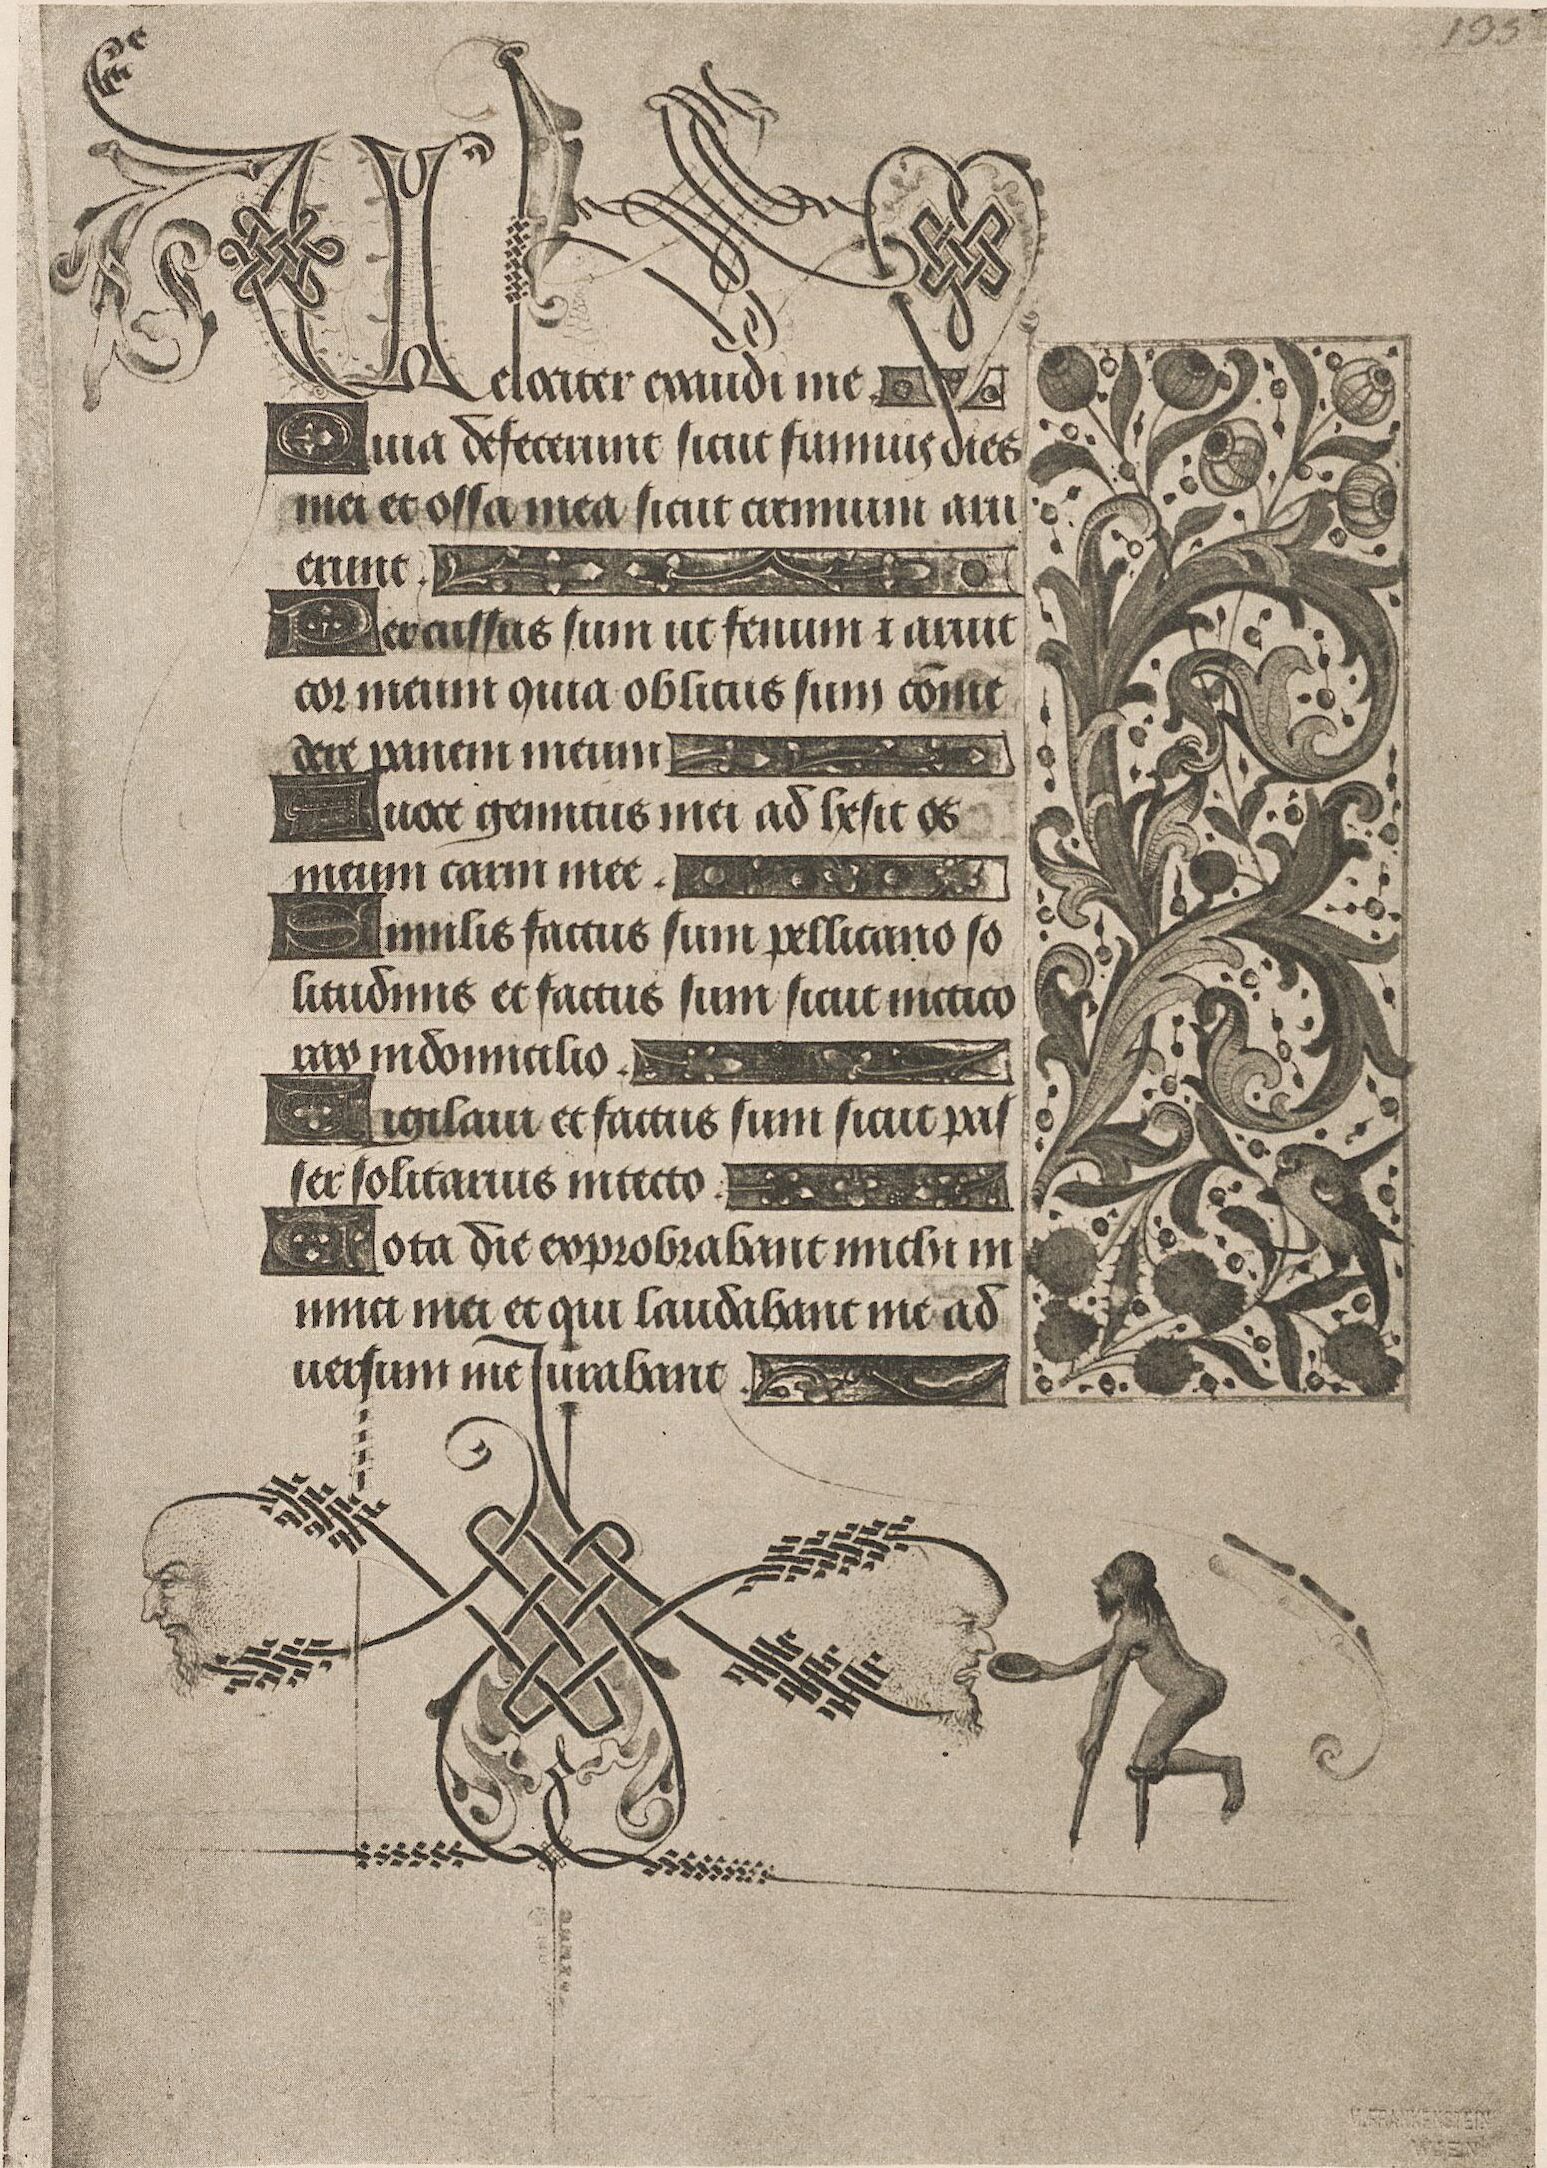 195
Velociter exaudi me.
Quia defecerunt sicut fumus dies
mei et ossa mea sicut cremium aru
erunt.
Percussus sum ut fenum ⁊ aruit
cor meum quia oblitus sum cōme
dere panem meum
A uoce gemitus mei ad hesit os
meum carni mee.
Similis factus sum pellicano so
litudinis et factus sum sicut nictico
rax in domicilio.
Vigilaui et factus sum sicut pas
ser solitarius in tecto.
Tota die exprobrabant michi in
imici mei et qui laudabant me ad
uersum me iurabant.
M. FRANKENSTEIN
WIEN